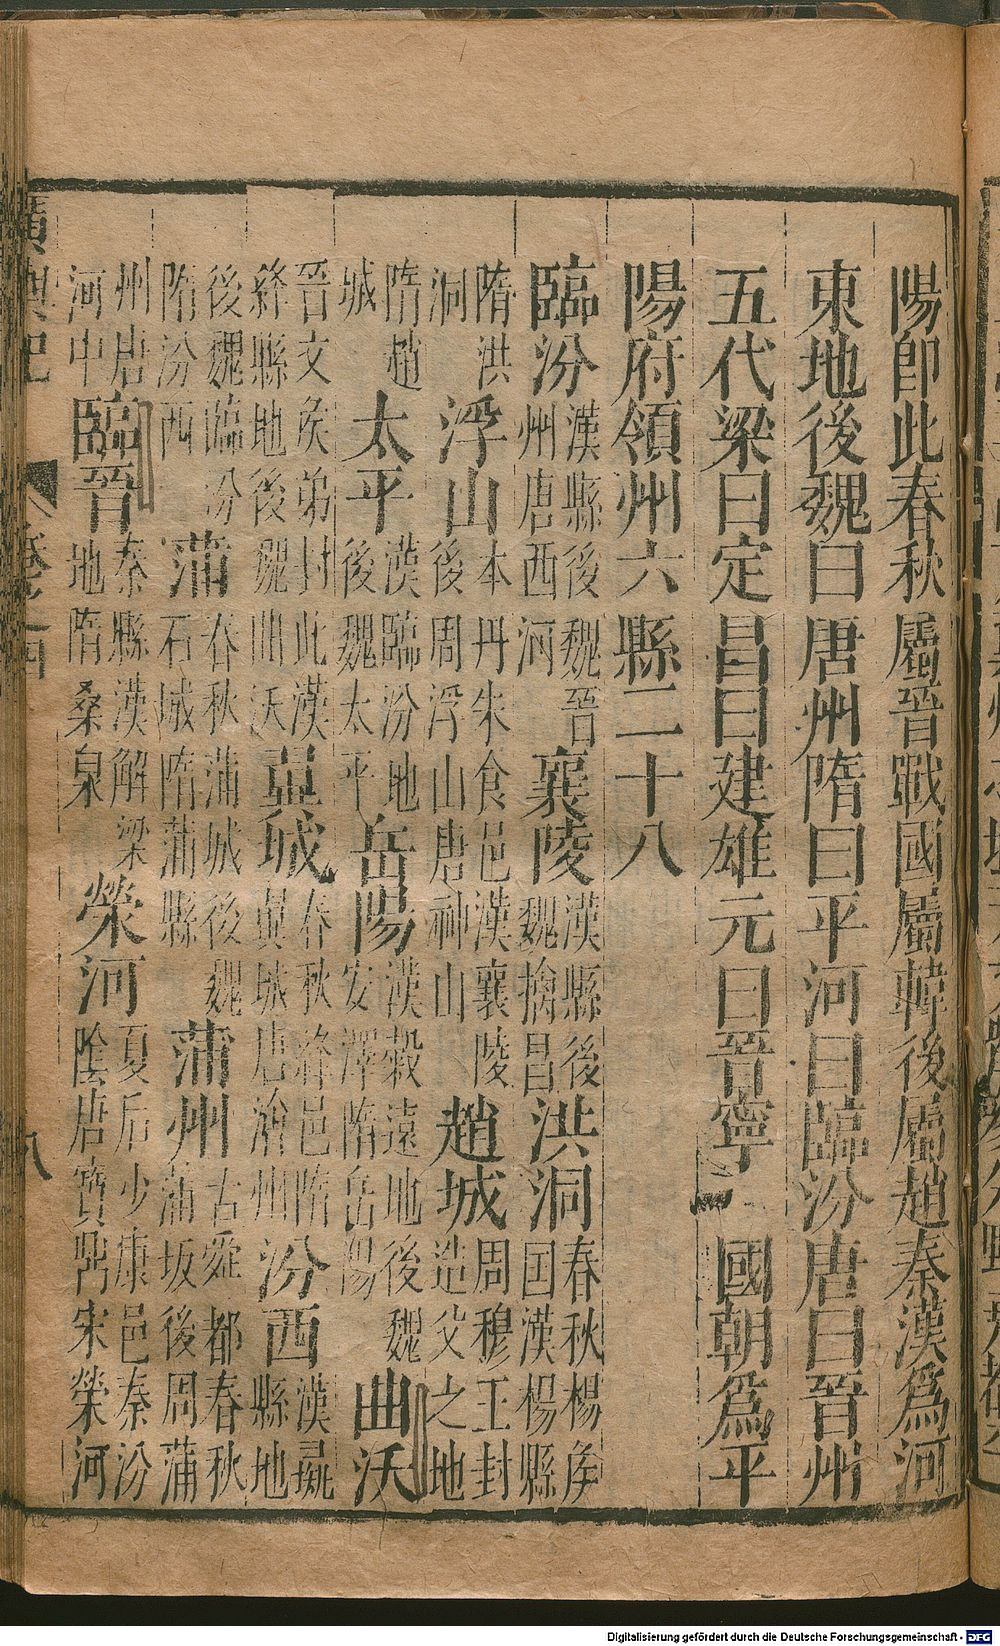 陽即此春秋屬晉戰國屬韓後屬趙秦漢爲河
東地後魏曰唐州隋曰平河曰臨汾唐曰晉州
五代梁曰定昌曰建雄元曰晉寧 國朝爲平
陽府領州六縣二十八
臨汾漢縣後魏晉州唐西河 襄陵漢縣後魏擒昌 洪洞春秋楊侯国漢楊縣
隋洪洞 浮山本丹朱食邑漢襄陵後周浮山唐神山 趙城周穆王封造父之地
隋趙城 太平漢臨汾地後魏太平 岳陽漢穀遠地後魏安澤隋岳陽 曲沃
晉文侯弟封此漢絳縣地後魏曲沃 翼城春秋絳邑隋翼城唐澮州 汾西漢彘縣地
後魏臨汾隋汾西 蒲春秋蒲城後魏石城隋蒲縣 蒲州古舜都春秋蒲坂後周蒲
州唐河中 臨晉秦縣漢解梁地隋桑泉 榮河夏后少康邑秦汾陰唐寶鼎宋榮河
廣輿記 卷之四 八
Digitalisierung gefördert durch die Deutsche Forschungsgemeinschaft - DFG